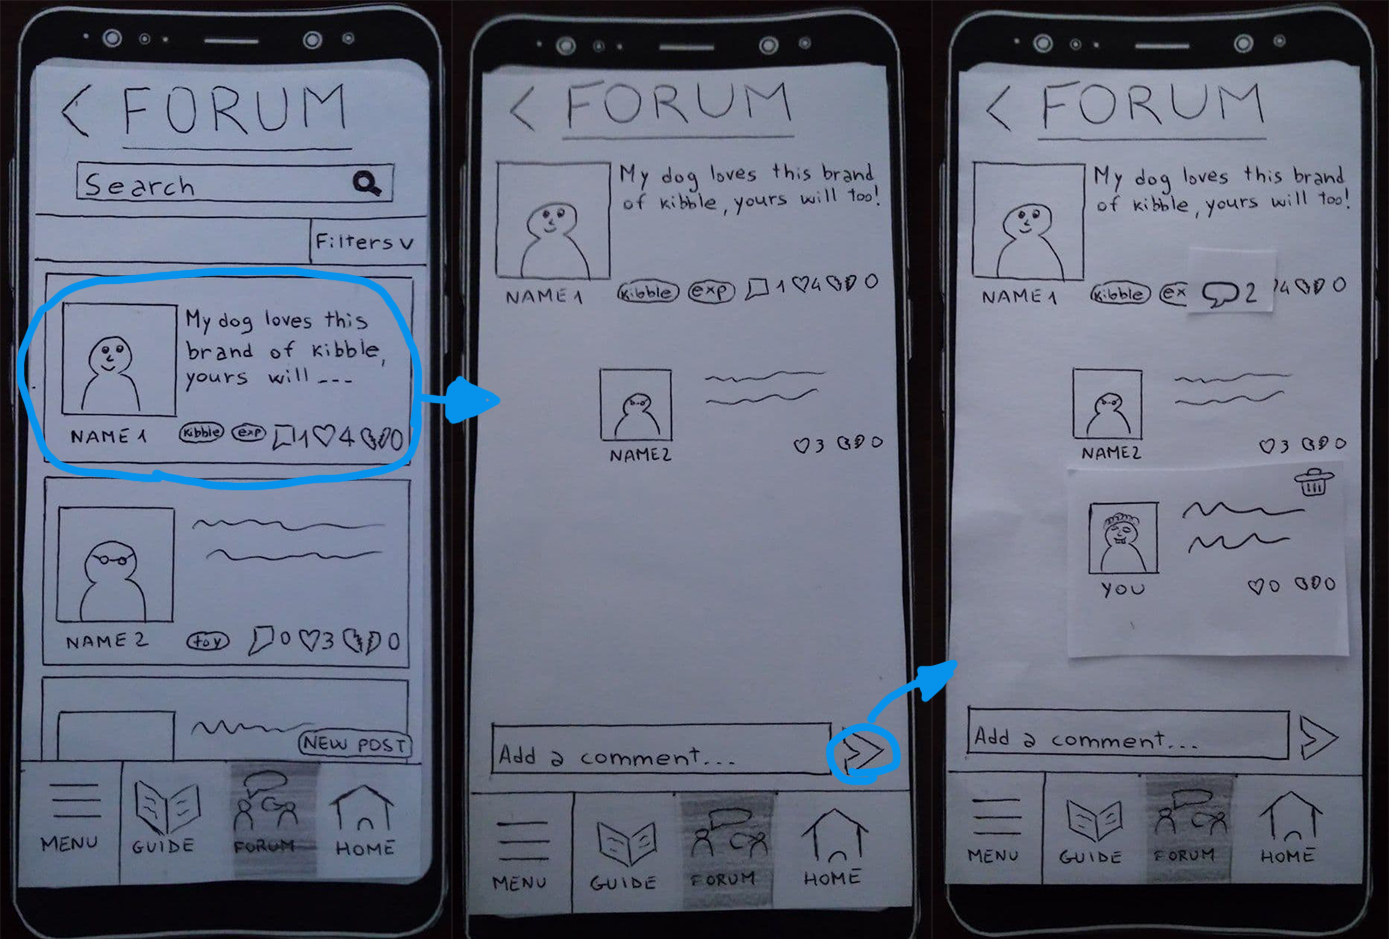 FORUM
Search
Filters
My dog loves this
brand of kibble,
yours will ---
NAME 1
kibble exp 1 4 0
NAME 2
toy 0 3 0
NEW POST
MENU GUIDE FORUM HOME
FORUM
My dog loves this brand
of kibble, yours will too!
NAME 1
kibble exp 1 4 0
NAME2
3 0
Add a comment...
MENU GUIDE FORUM HOME
FORUM
My dog loves this brand
of kibble, yours will too!
NAME 1
kibble ex 2 4 0
NAME2
3 0
YOU
0 0
Add a comment...
MENU GUIDE FORUM HOME